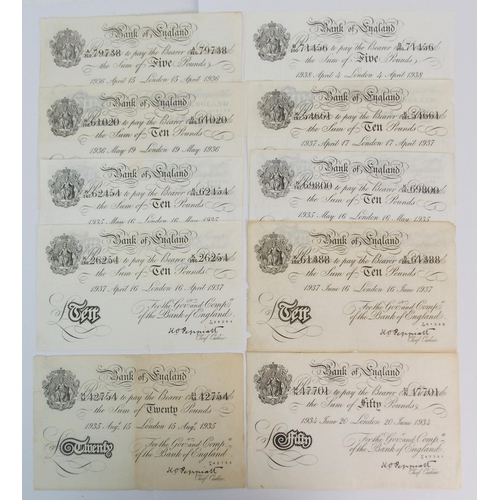 Bank of England
79738 to pay the Bearer 79738
the Sum of Five Pounds
1936 April 15 London 15 April 1936
Bank of England
61020 to pay the Bearer 61020
the Sum of Ten Pounds
1936 May 19 London 19 May 1936
Bank of England
62454 to pay the Bearer 62454
the Sum of Ten Pounds
1935 May 16 London 16 May 1935
Bank of England
26254 to pay the Bearer 26254
the Sum of Ten Pounds
1937 April 16 London 16 April 1937
For the Govr. and Compa.
of the Bank of England
£ Ten
K O Peppiatt
Chief Cashier
Bank of England
42754 to pay the Bearer 42754
the Sum of Twenty Pounds
1935 Augt. 15 London 15 Augt. 1935
For the Govr. and Compa.
of the Bank of England
£ Twenty
K O Peppiatt
Chief Cashier
Bank of England
71456 to pay the Bearer 71456
the Sum of Five Pounds
1938 April 4 London 4 April 1938
Bank of England
54661 to pay the Bearer 54661
the Sum of Ten Pounds
1937 April 17 London 17 April 1937
Bank of England
69800 to pay the Bearer 69800
the Sum of Ten Pounds
1935 May 16 London 16 May 1935
Bank of England
61388 to pay the Bearer 61388
the Sum of Ten Pounds
1937 June 16 London 16 June 1937
For the Govr. and Compa.
of the Bank of England
£ Ten
K O Peppiatt
Chief Cashier
Bank of England
47701 to pay the Bearer 47701
the Sum of Fifty Pounds
1934 June 20 London 20 June 1934
For the Govr. and Compa.
of the Bank of England
£ Fifty
K O Peppiatt
Chief Cashier